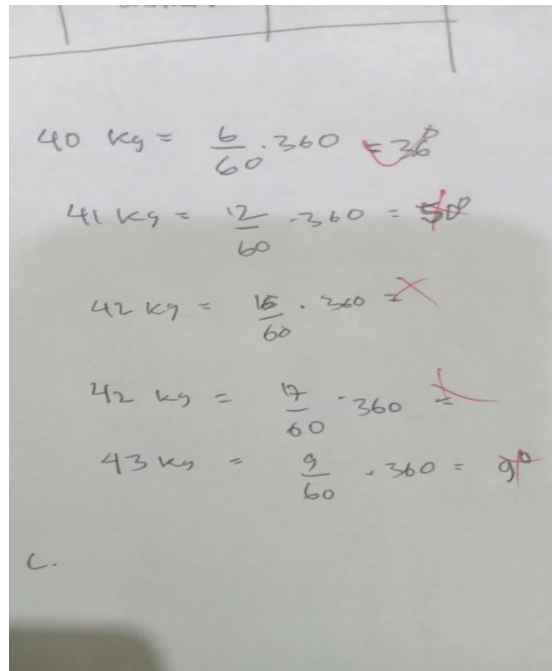 40 kg = 6/60 . 360 = 36°
41 kg = 12/60 . 360 = 50°
42 kg = 16/60 . 360 =
42 kg = 17/60 . 360 =
43 kg = 9/60 . 360 = 9°
C.